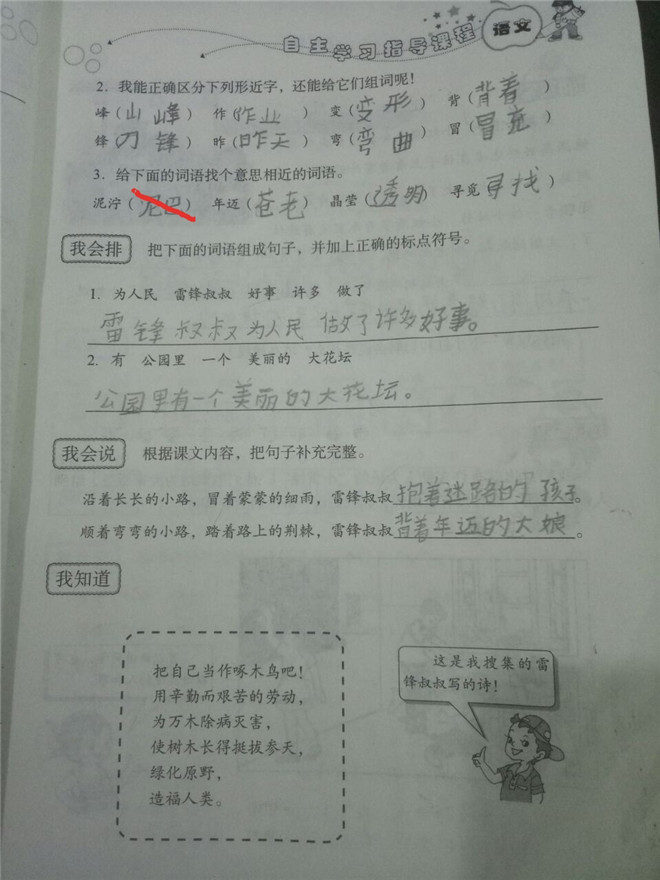 自主学习指导课程 语文
2. 我能正确区分下列形近字，还能给它们组词呢！
峰（山峰） 作（作业） 变（变形） 背（背着）
锋（刀锋） 昨（昨天） 弯（弯曲） 冒（冒充）
3. 给下面的词语找个意思相近的词语。
泥泞（泥巴） 年迈（苍老） 晶莹（透明） 寻觅（寻找）
我会排 把下面的词语组成句子，并加上正确的标点符号。
1. 为人民 雷锋叔叔 好事 许多 做了
雷锋叔叔为人民做了许多好事。
2. 有 公园里 一个 美丽的 大花坛
公园里有一个美丽的大花坛。
我会说 根据课文内容，把句子补充完整。
沿着长长的小路，冒着蒙蒙的细雨，雷锋叔叔抱着迷路的孩子。
顺着弯弯的小路，踏着路上的荆棘，雷锋叔叔背着年迈的大娘。
我知道
把自己当作啄木鸟吧！
用辛勤而艰苦的劳动，
为万木除病灭害，
使树木长得挺拔参天，
绿化原野，
造福人类。
这是我搜集的雷
锋叔叔写的诗！